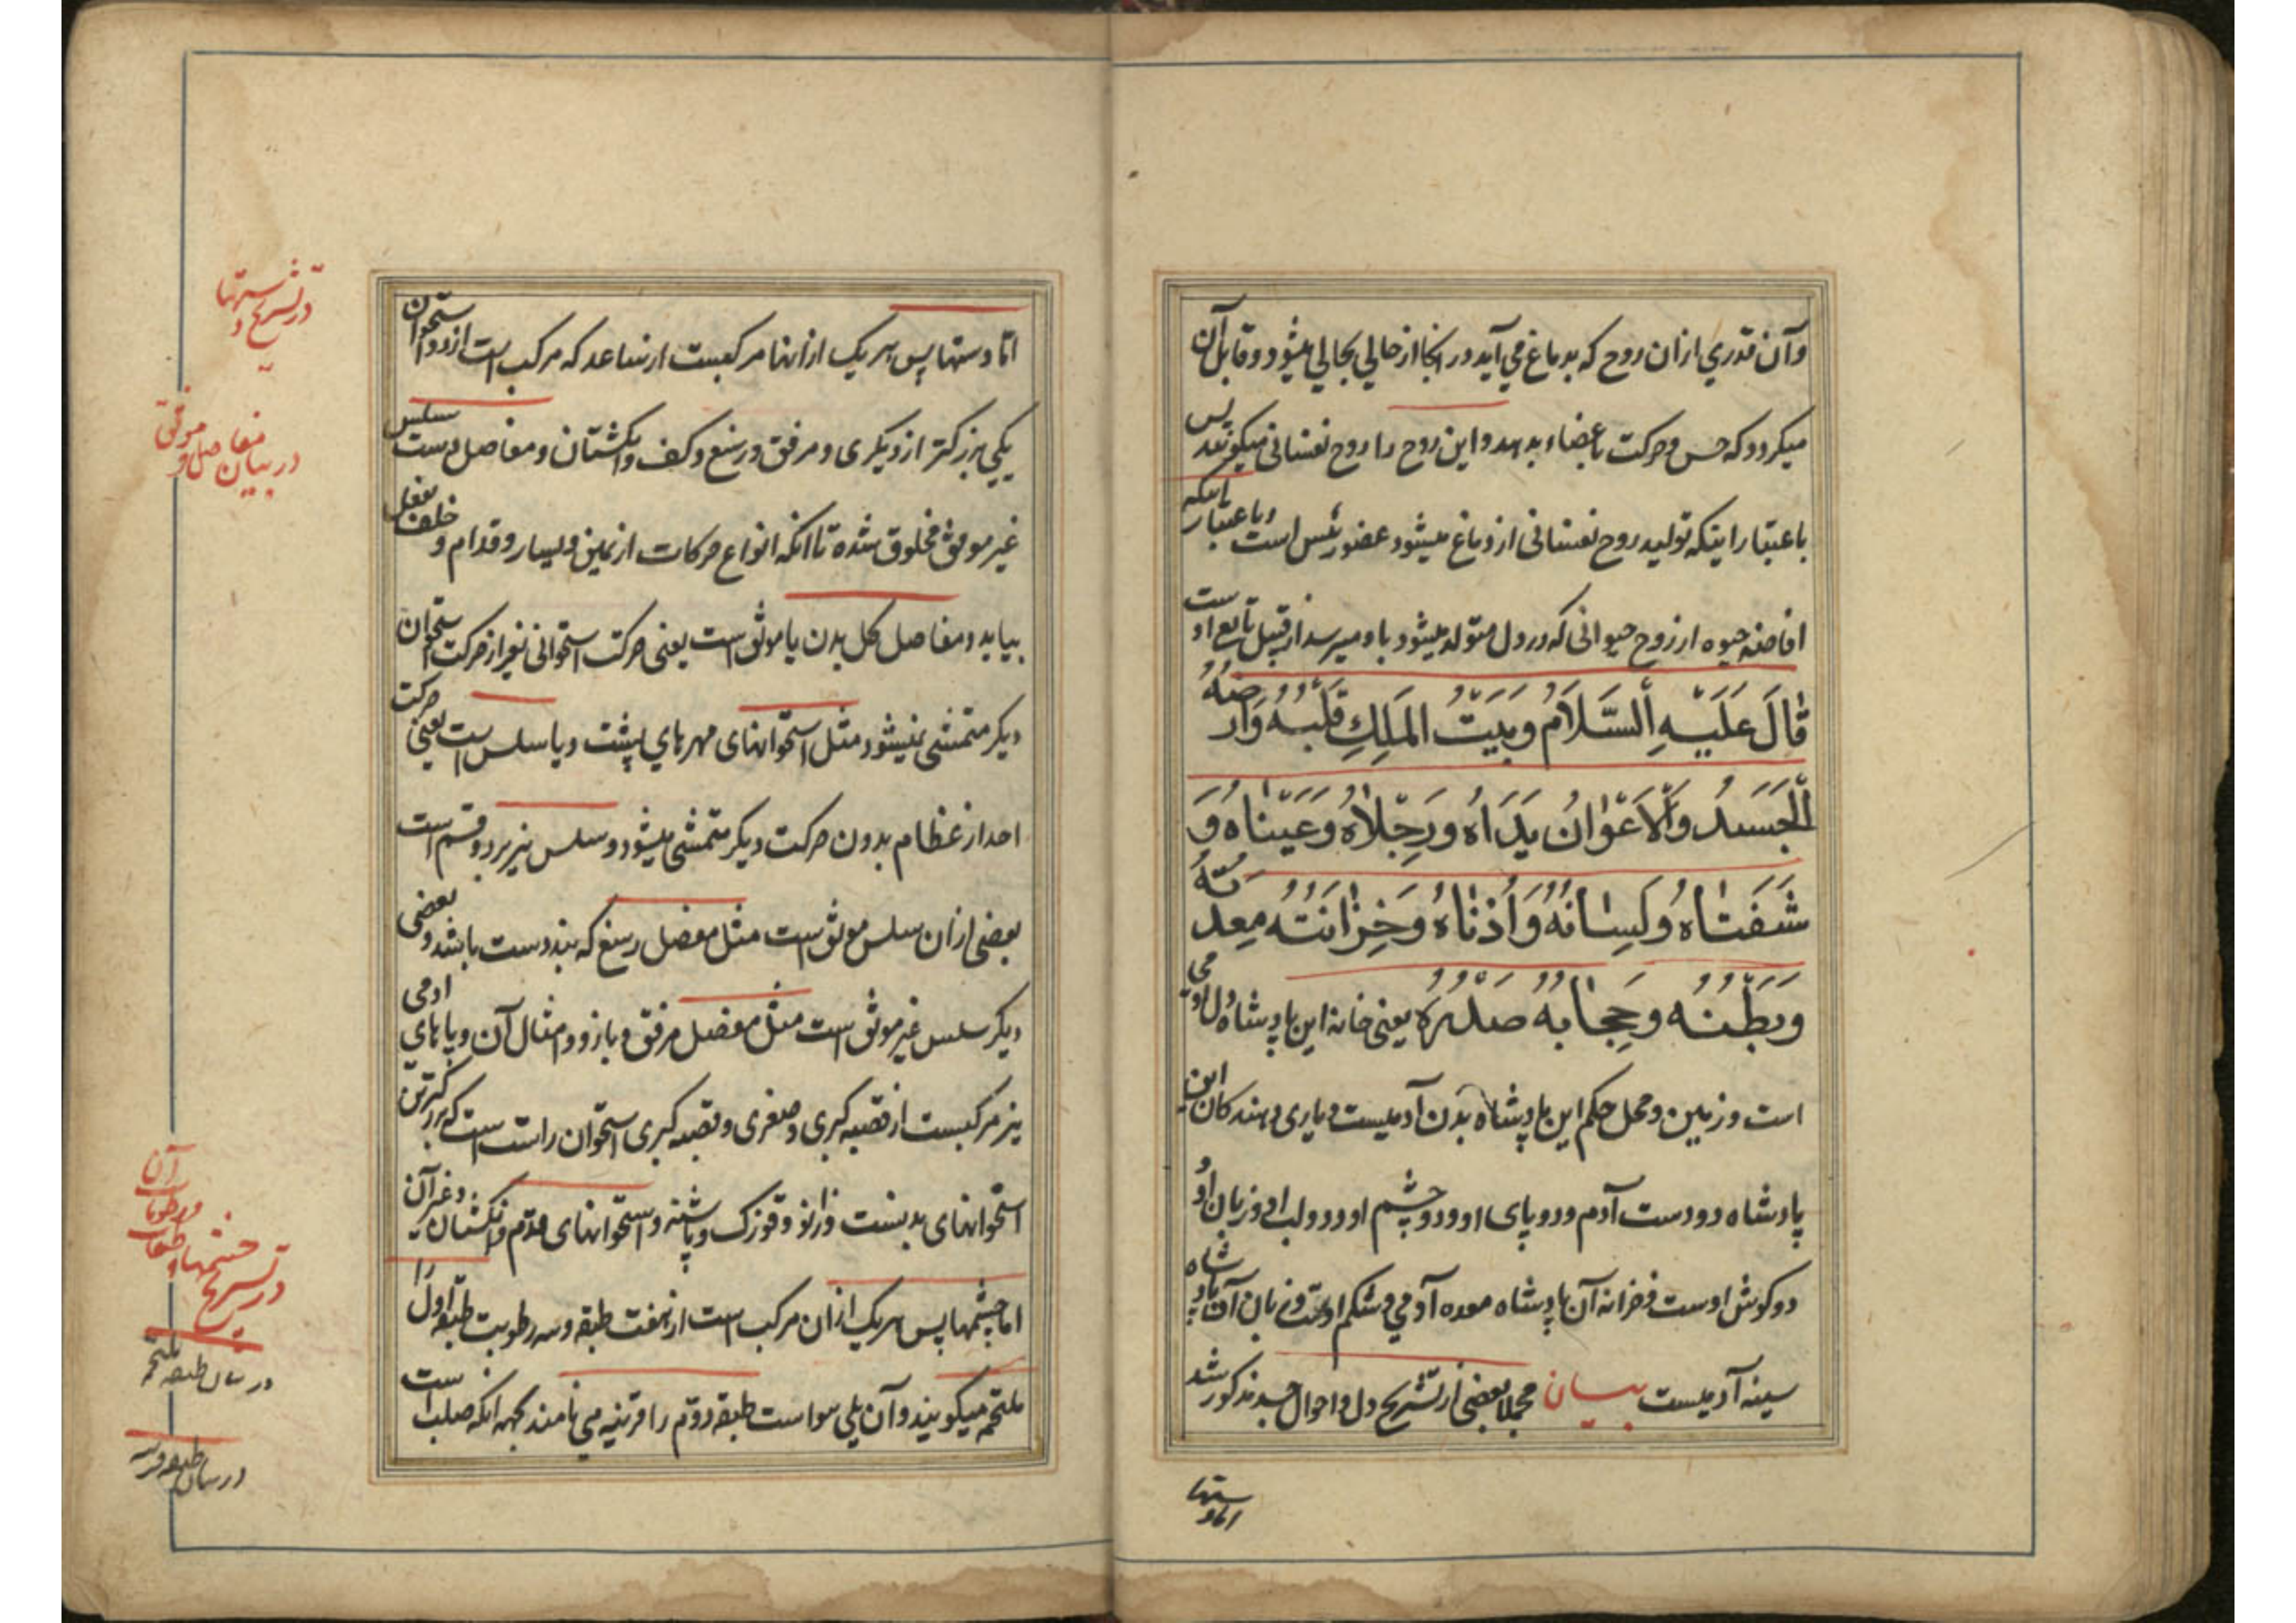 وآن قدري ازان روح که بدماغ مي آيد در انجا از حالي بحالي ميشود و قابل آن
ميكردد که حس و حرکت باعضاء بدهد و اين روح را روح نفسانی ميكويند پس
باعتبار اينکه توليد روح نفسانی از دماغ ميشود عضو رئيس است و باعتبار اينکه
افاضه حيوه از روح حيوانی که در دل متولد ميشود باو ميرسد از قبيل تابع اوست
قَالَ عَلَيْهِ السَّلَامُ وَبَيْتُ المَلِكِ قَلْبُهُ وَاَرْضُهُ
اَلْجَسَدُ وَالْاَعْوَانُ يَدَاهُ وَرِجْلَاهُ وَعَيْنَاهُ وَ
شَفَتَاهُ وَلِسَانُهُ وَاُذُنَاهُ وَخِزَانَتُهُ مِعِدَتُهُ
وَبَطْنُهُ وَحِجَابُهُ صَدْرُهُ يعنی خانه اين پادشاه دل آدمي
است و زمين و محل حکم اين پادشاه بدن آدميست و ياری دهندکان اين
پادشاه دو دست آدم و دو پای او و دو چشم او و دو لب او و زبان او و
دو کوش اوست و خزانه آن پادشاه معده آدمي و شکم اوست و آن پادشاه
سينه آدميست بيان مجملا بعضی از تشريح دل و احوال جسد مذکور شد
اما دستها
اما دستها پس هريک ازانها مرکبست از ساعد که مرکب است از دو استخوان
يکي بزرکتر از ديکری و مرفق و رسغ و کف و انکشتان و مفاصل دست سلس
غير موثق مخلوق شده تا انکه انواع حرکات از يمين و يسار و قدام و خلف بفعل
بيايد و مفاصل کل بدن يا موثق است يعنی حرکت استخوانی بغير از حرکت استخوان
ديکر متمشی نميشود مثل استخوانهای مهرهاي پشت و يا سلس است يعنی حرکت
احد از عظام بدون حرکت ديکر متمشی ميشود و سلس نيز بر دو قسم است
بعضی ازان سلس موثق است مثل مفصل رسغ که بند دست باشد و بعضی
ديکر سلس غير موثق است مثل مفصل مرفق و بازو و امثال آن و پاهاي ادمی
نيز مرکبست از قصبه کبری و صغری و قصبه کبری استخوان راست است که بزرکترين
استخوانهای بدنست و زانو و قوزک و پاشنه و استخوانهای قدم و انکشتان و غير آن
اما چشمها پس هريک ازان مرکب است از هفت طبقه و سه رطوبت طبقه اول را
ملتحمه ميکويند و آن يلي هوا است طبقه دوم را قرنيه می نامند بجهه انکه صلب است
در تشريح دستها
در بيان مفاصل و مرفق
در تشريح چشمها و طبقات و رطوبات آن
در بيان طبقه ملتحمه
در بيان طبقه قرنيه